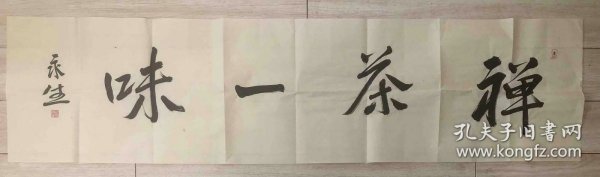 禅茶一味
永生
孔夫子旧书网
www.kongfz.com